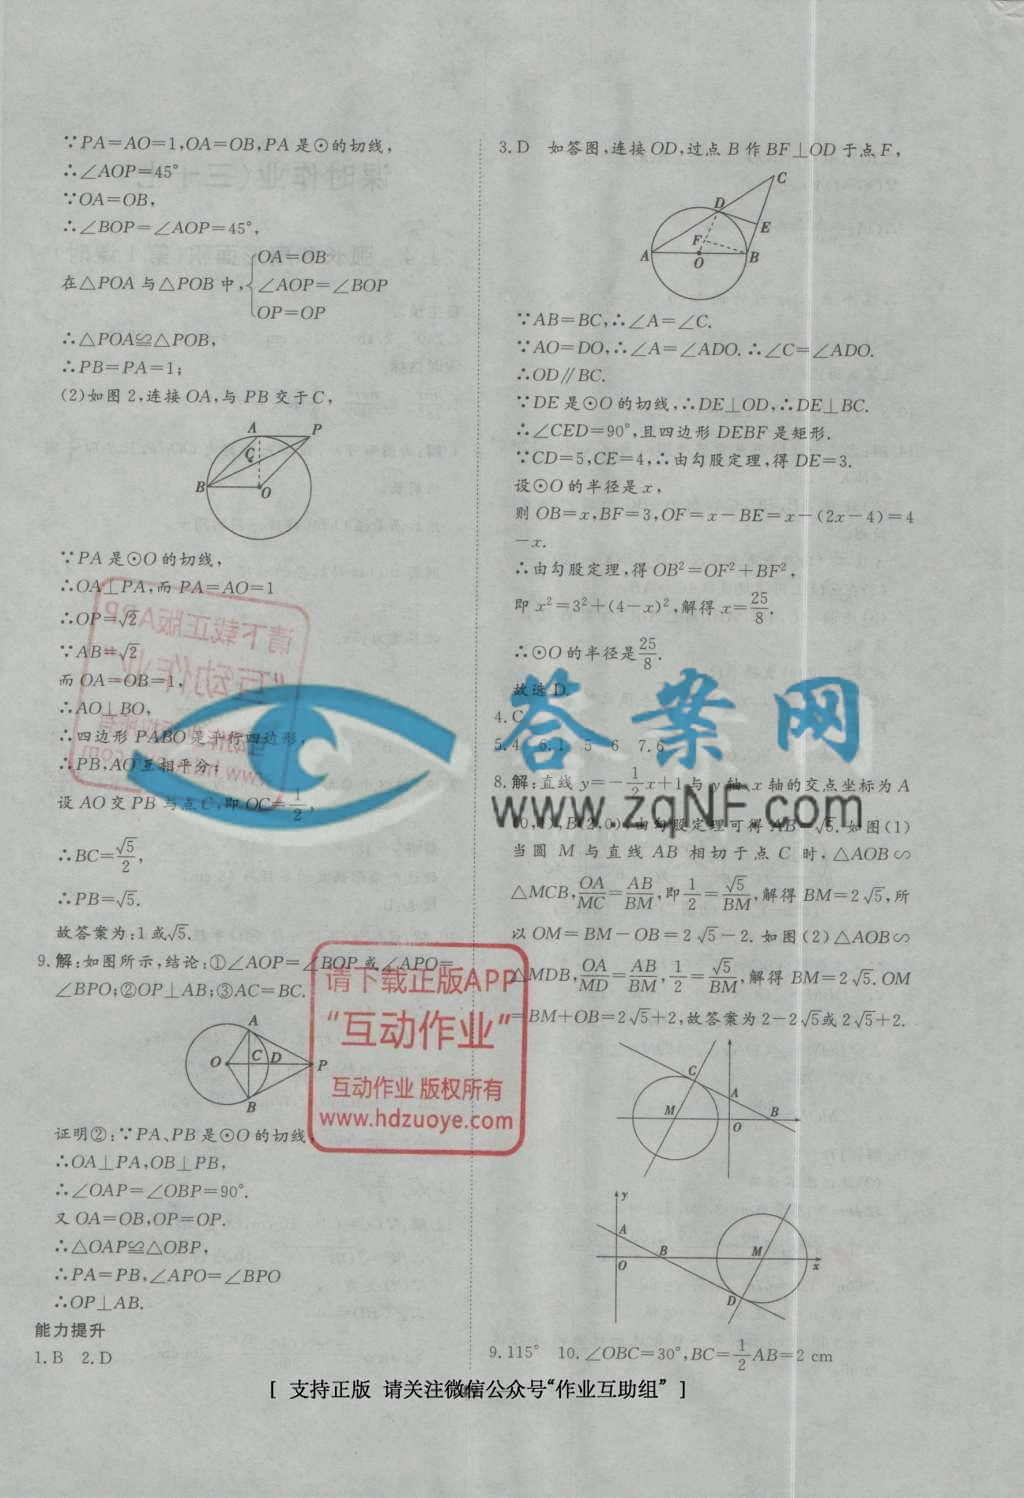 ∵PA=AO=1,OA=OB,PA是⊙的切线,
∴∠AOP=45°
∵OA=OB,
∴∠BOP=∠AOP=45°,
在△POA与△POB中,{OA=OB
∠AOP=∠BOP
OP=OP
∴△POA≌△POB,
∴PB=PA=1;
(2)如图2,连接OA,与PB交于C,
A P
C
B O
∵PA是⊙O的切线,
∴OA⊥PA,而PA=AO=1
∴OP=√2
∵AB=√2
而OA=OB=1,
∴AO⊥BO,
∴四边形PABO是平行四边形,
∴PB,AO互相平分;
设AO交PB与点C,即OC=1/2,
∴BC=√5/2,
∴PB=√5.
故答案为:1或√5.
9.解:如图所示,结论:①∠AOP=∠BOP或∠APO=
∠BPO;②OP⊥AB;③AC=BC.
A
O C D P
B
证明②:∵PA、PB是⊙O的切线,
∴OA⊥PA,OB⊥PB,
∴∠OAP=∠OBP=90°.
又OA=OB,OP=OP.
∴△OAP≌△OBP,
∴PA=PB,∠APO=∠BPO
∴OP⊥AB.
能力提升
1.B 2.D
3.D 如答图,连接OD,过点B作BF⊥OD于点F,
C
D
E
F
A O B
∵AB=BC,∴∠A=∠C.
∵AO=DO,∴∠A=∠ADO.∴∠C=∠ADO.
∴OD∥BC.
∵DE是⊙O的切线,∴DE⊥OD,∴DE⊥BC.
∴∠CED=90°,且四边形DEBF是矩形.
∵CD=5,CE=4,∴由勾股定理,得DE=3.
设⊙O的半径是x,
则OB=x,BF=3,OF=x-BE=x-(2x-4)=4
-x.
∴由勾股定理,得OB²=OF²+BF²,
即x²=3²+(4-x)²,解得x=25/8.
∴⊙O的半径是25/8.
故选D.
4.C
5.4 6.1 5 6 7.6
8.解:直线y=-1/2x+1与y轴、x轴的交点坐标为A
(0,1),B(2,0),由勾股定理可得AB=√5.如图(1)
当圆M与直线AB相切于点C时,△AOB∽
△MCB,OA/MC=AB/BM,即1/2=√5/BM,解得BM=2√5,所
以OM=BM-OB=2√5-2.如图(2)△AOB∽
△MDB,OA/MD=AB/BM,1/2=√5/BM,解得BM=2√5.OM
=BM+OB=2√5+2,故答案为2-2√5或2√5+2.
C
A
M O B
y
A
O B M x
D
9.115° 10.∠OBC=30°,BC=1/2AB=2 cm
答案网
www.zqNF.com
请下载正版APP
“互动作业”
互动作业 版权所有
www.hdzuoye.com
[ 支持正版 请关注微信公众号“作业互助组” ]